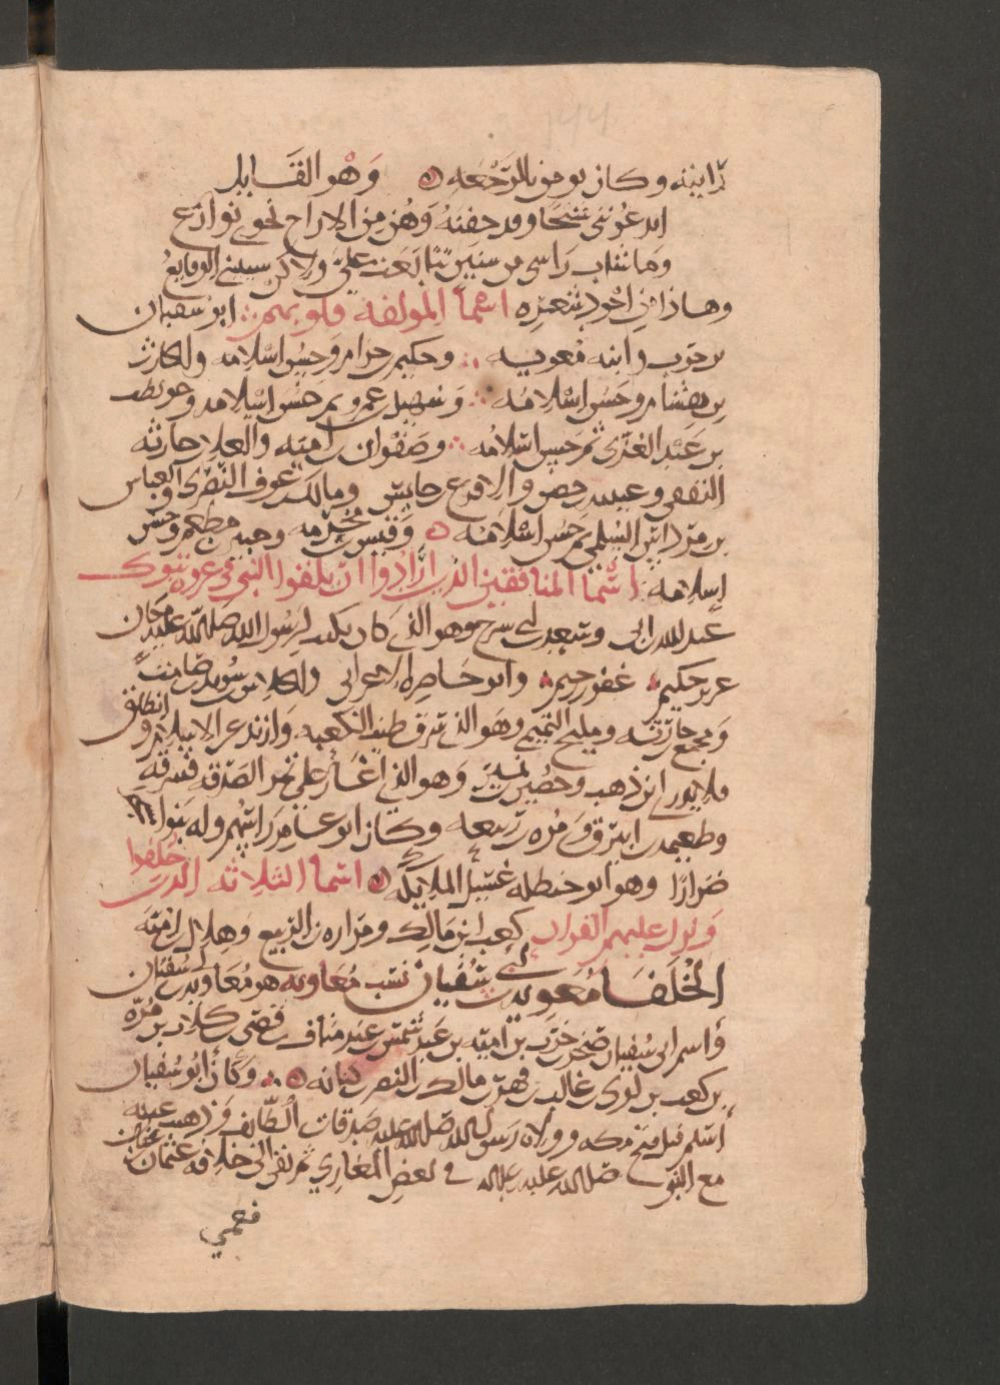 رايته وكان يومن بالرجعه ۞ وهو القايل
ايدعونني شيخا وقد حفته وهن من الازاح نحوي نوازع
وما شاب راسي من سنين تتابعت علي ولاكن شيبتني الوقايع
وهاذا من اجود شعره اسما المولفه قلوبهم ؞ ابو سفيان
بن حرب وابنه معويه ؞ وحكيم بن حزام وحسن اسلامه والحارث
بن هشام وحسن اسلامه ؞ وسهيل بن عمرو ثم حسن اسلامه وحويطب
بن عبد العزى ثم حسن اسلامه ؞ وصفوان بن اميه والعلا بن حارثه
الثقفي وعيينه بن حصن والاقرع بن حابس ومالك بن عوف النصري والعباس
بن مرداس السلمي ثم حسن اسلامه ۞ وقيس بن مخرمه وجبير بن مطعم وحسن
اسلامه اسما المنافقين الذين ارادوا ان يلقوا النبي في غزوه تبوك
عبد الله بن ابي وسعد بن ابي سرح وهو الذي كان يكتب لرسول الله صلى الله عليه مكان
عزيز حكيم ؞ غفور رحيم ؞ وابو حاصره الاعرابي والجلاس بن سويد بن صامت
ومجمع بن حارثه ومليح التميمي وهو الذي سرق طيب الكعبه وارتد عن الاسلام وانطلق
فلا يدرى اين ذهب وحصين بن نمير وهو الذي اغار على تمر الصدقه فسرقه
وطعيمه بن ابيرق ومره بن ربيعه وكان ابو عامر راسهم وله بنوا
ضرارا وهو ابو حنظله غسيل الملايكه ۞ اسما الثلاثه الذين خلفوا
ونزل عليهم القران كعب ابن مالك ومراره بن الربيع وهلال بن اميه
الخلفا معويه بن ابي سفيان نسب معاويه هو معاويه بن ابي سفيان
واسم ابي سفيان صخر بن حرب بن اميه بن عبد شمس بن عبد مناف بن قصي بن كلاب بن مره
بن كعب بن لوى بن غالب بن فهر بن مالك بن النضر بن كنانه ۞ ؞ وكان ابو سفيان
اسلم قبل فتح مكه وولاه رسول الله صلى الله عليه صدقات الطايف وذهبت عينه
مع النبي صلى الله عليه في بعض المغازي ثم بقي الى خلافه عثمان بن عفان
فعمي